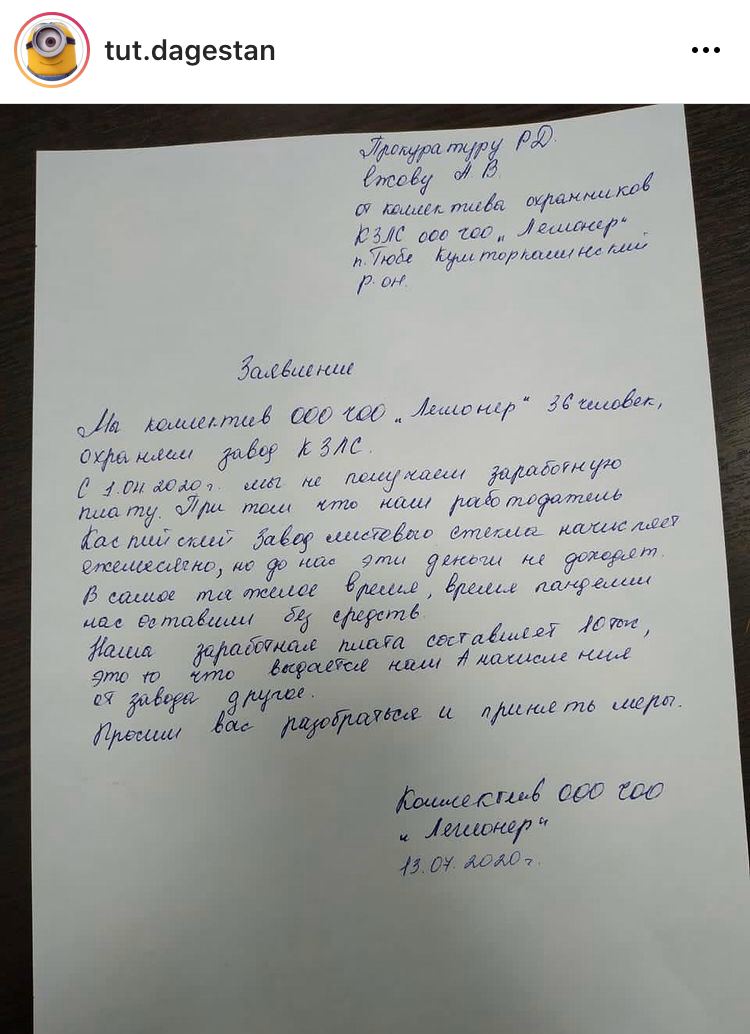 tut.dagestan
Прокуратуру РД.
Ежову А. В.
от коллектива охранников
КЗЛС ООО ЧОО „Легионер"
п. Тюбе Кумторкалинский
р-он.
Заявление
Мы коллектив ООО ЧОО „Легионер" 36 человек,
охраняем завод КЗЛС.
С 1.04.2020г. мы не получаем заработную
плату. При том что наш работодатель
Каспийский Завод листового стекла начисляет
ежемесячно, но до нас эти деньги не доходят.
В самое тяжелое время, время пандемии
нас оставили без средств.
Наша заработная плата составляет 10тыс,
это то что выдается нам А начисления
от завода другое.
Просим вас разобраться и принять меры.
Коллектив ООО ЧОО
„Легионер"
13.07.2020г.